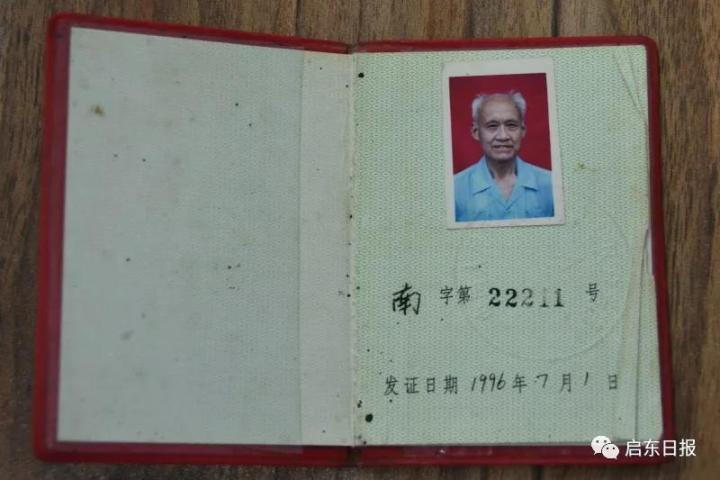 南字第 22211 号
发证日期 1996年7月1日
启东日报